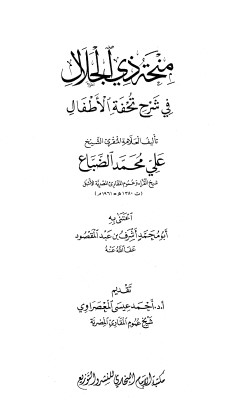 منحة ذي الجلال
في شرح تحفة الأطفال
تأليف العلامة المقرئ الشيخ
علي محمد الضباع
شيخ القراء وعموم المقارئ المصرية الأسبق
(ت ١٣٨٠ هـ = ١٩٦١ م)
اعتنى به
أبو محمد أشرف بن عبد المقصود
عفا الله عنه
تقديم
أ.د. أحمد عيسى المعصراوي
شيخ عموم المقارئ المصرية
مكتبة الإمام البخاري للنشر والتوزيع